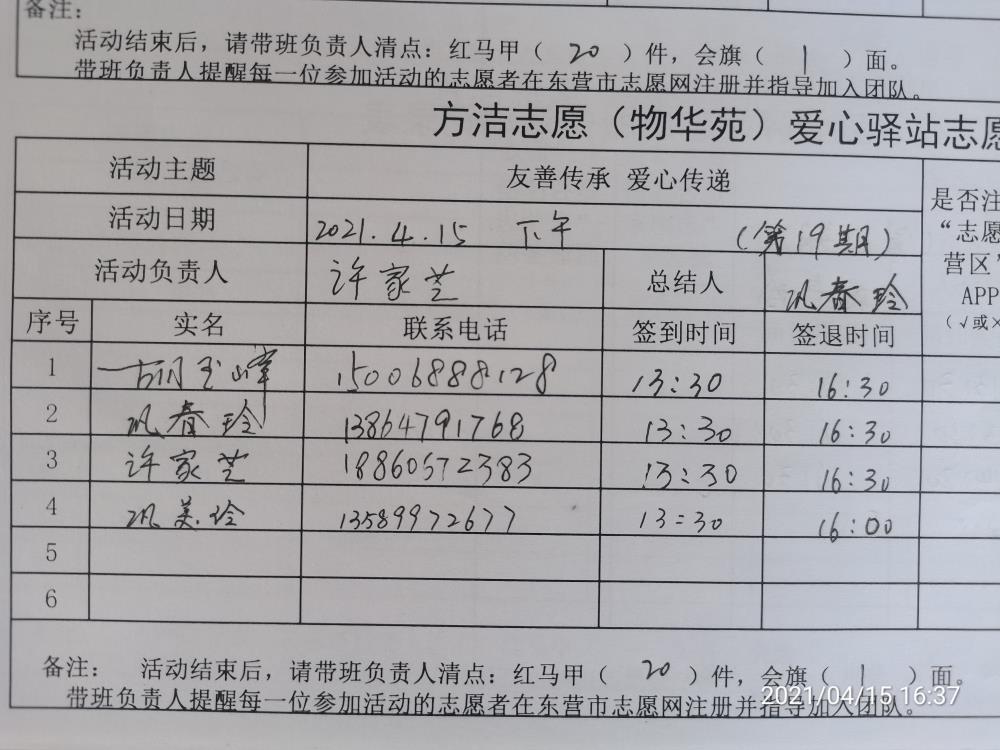 备注：
活动结束后，请带班负责人清点：红马甲（ 20 ）件，会旗（ 1 ）面。
带班负责人提醒每一位参加活动的志愿者在东营市志愿网注册并指导加入团队。
方洁志愿（物华苑）爱心驿站志愿
活动主题 友善传承 爱心传递
活动日期 2021.4.15 下午 （第19期）
活动负责人 许家芝 总结人 巩春玲
是否注
“志愿
营区”
APP
（√或×
序号 实名 联系电话 签到时间 签退时间
1 玉峰 15006888128 13:30 16:30
2 巩春玲 13864791768 13:30 16:30
3 许家芝 18860572383 13:30 16:30
4 巩美玲 13589972677 13:30 16:00
5
6
备注： 活动结束后，请带班负责人清点：红马甲（ 20 ）件，会旗（ 1 ）面。
带班负责人提醒每一位参加活动的志愿者在东营市志愿网注册并指导加入团队。
2021/04/15 16:37